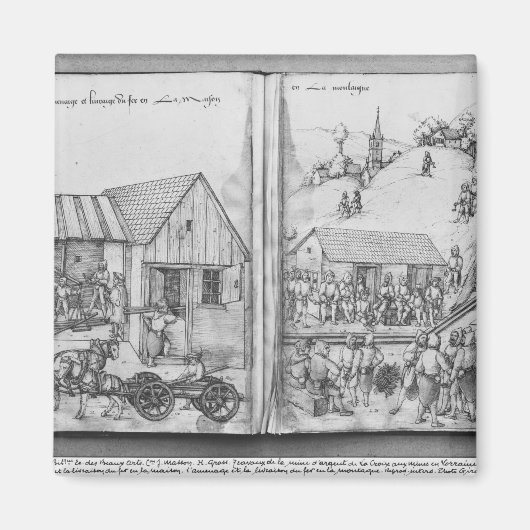 menaige et livraige du fer en La Maison
en La montaigne
Bibl. Ec des Beaux Arts. J. Masson. H. Gross Travaux de la mine d'argent de La Croix aux mines en Lorraine
et la livraison du fer en la maison. l'amenage et la livraison du fer en la montagne.